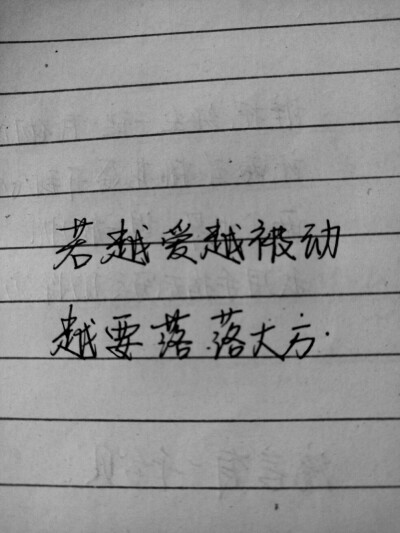 若越爱越被动
越要落落大方.